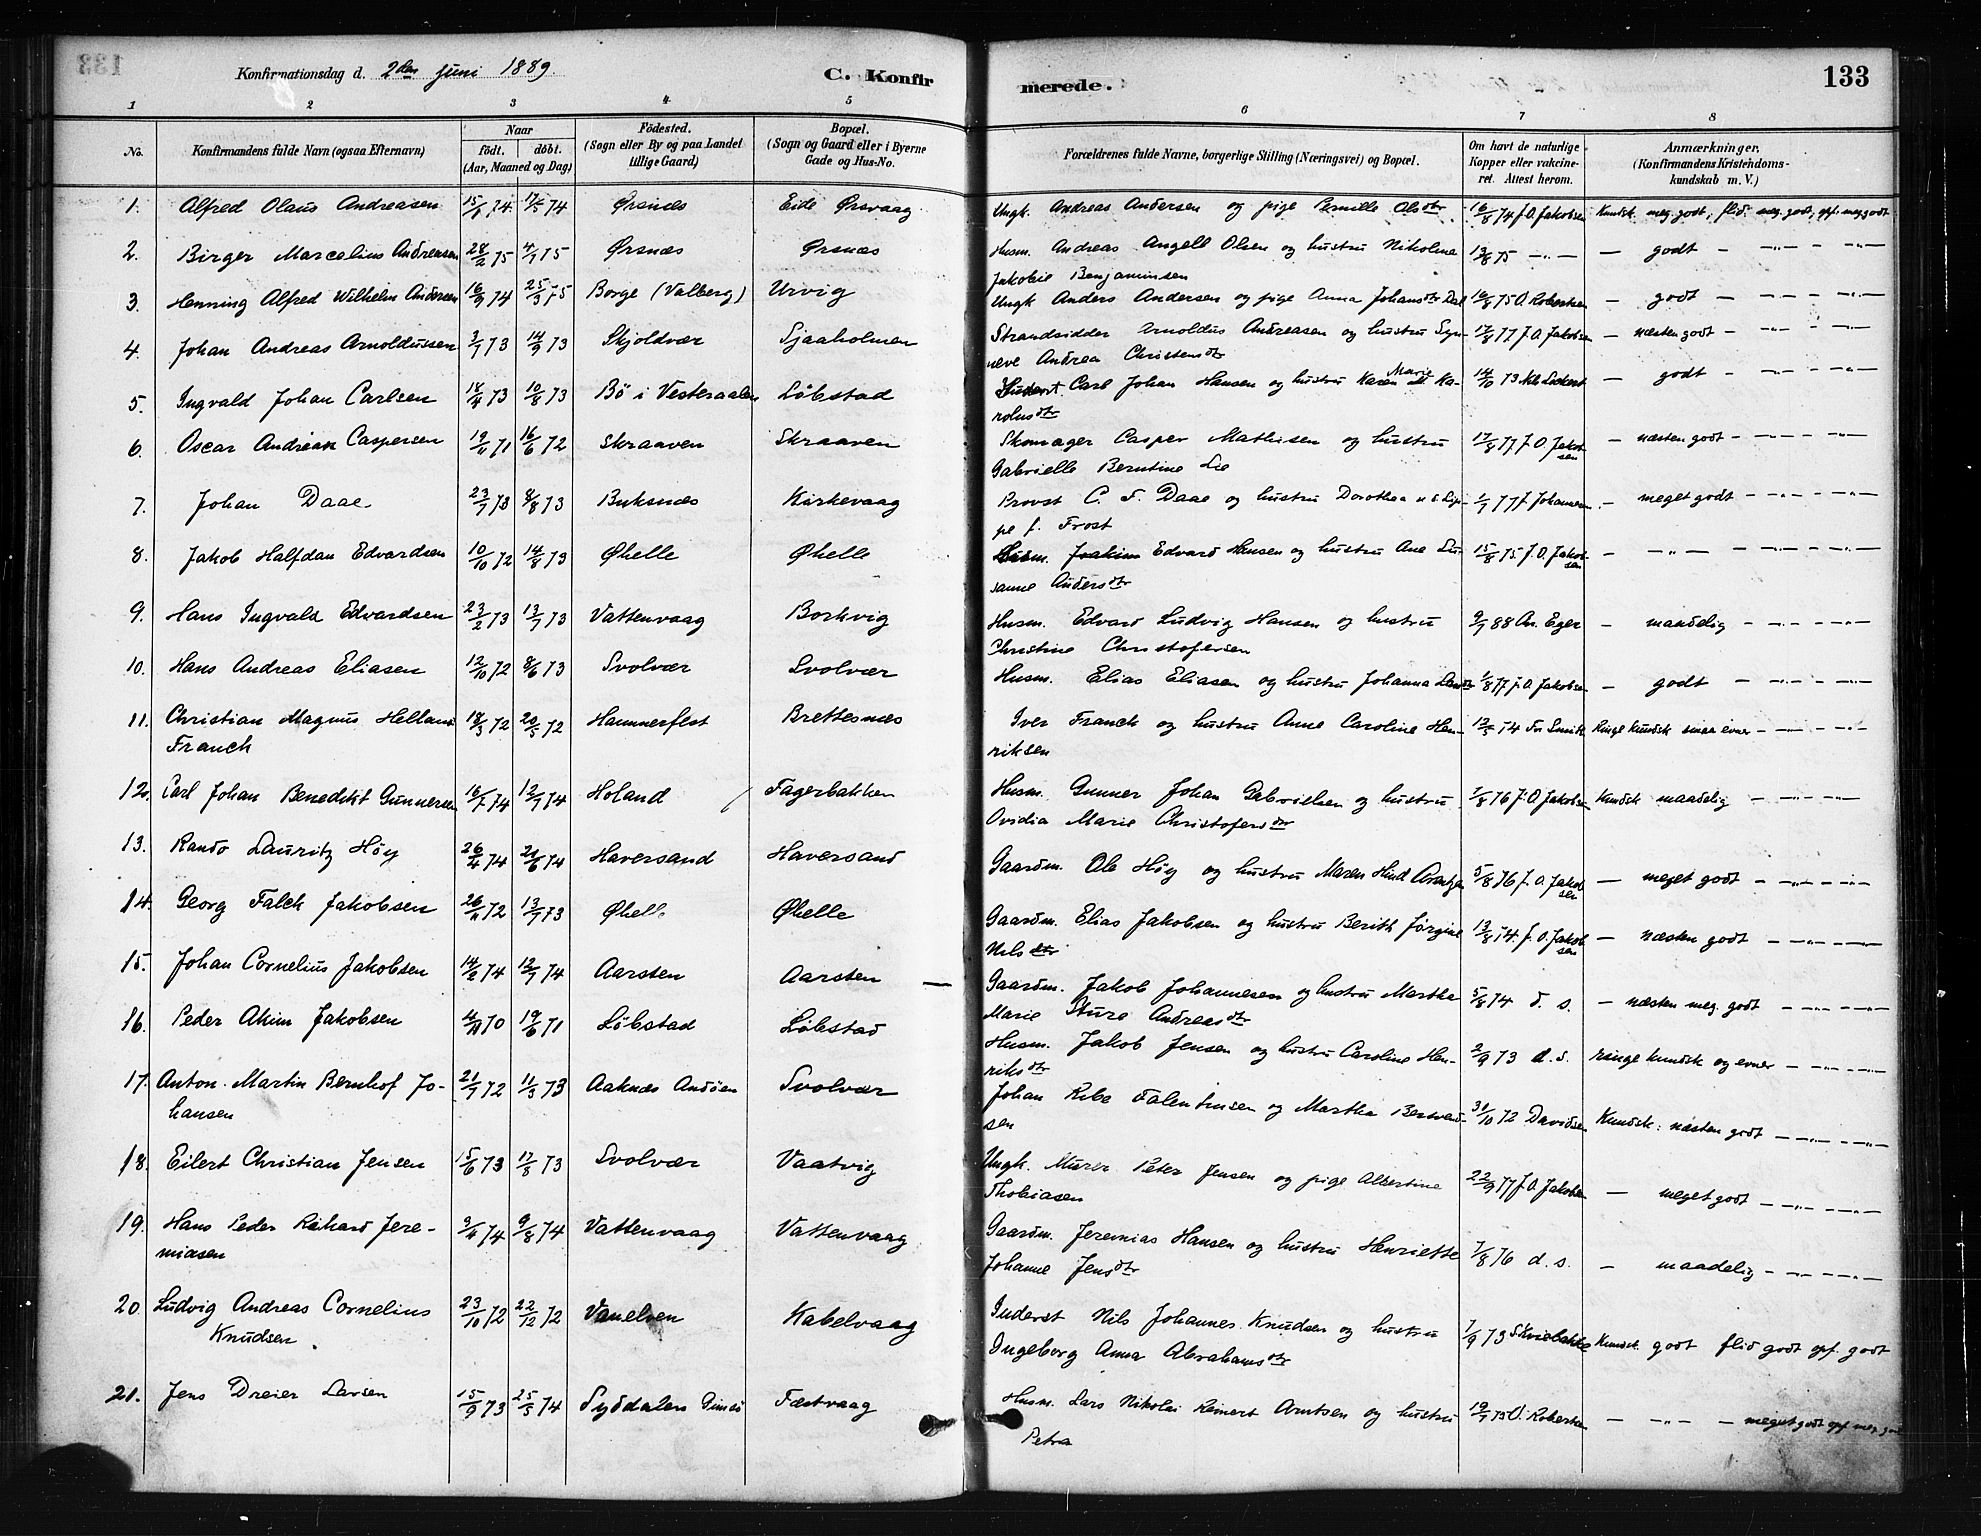 Konfirmationsdag d. 2den Juni 1889.
C. Konfirmerede.
133
1 2 3 4 5 6 7 8
No.
Konfirmandens fulde Navn (ogsaa Efternavn)
Naar
födt. döbt.
(Aar, Maaned og Dag)
Födested.
(Sogn eller By og paa Landet
tillige Gaard)
Bopæl.
(Sogn og Gaard eller i Byerne
Gade og Hus-No.
Forældrenes fulde Navne, borgerlige Stilling (Næringsvei) og Bopæl.
Om havt de naturlige
Kopper eller vakcine-
ret. Attest herom.
Anmærkninger.
(Konfirmandens Kristendoms-
kundskab m. V.)
1. Alfred Olaus Andreasen 74 74 Ørsnæs Eide Ørsvaag Ungk. Andreas Andersen og pige Pernille Olsdtr 16/8 74 J.O. Jakobsen Kundsk. meg. godt, flid meg. godt, opf. meg godt
2. Birger Marcelius Andreasen 28/2 75 4/7 75 Ørsnæs Ørsnæs Husm. Andreas Angell Olsen og hustru Nikoline 75 — godt —
Jakobie Benjaminsen
3. Henning Alfred Wilhelm Andersen 16/9 74 25/3 75 Borge (Valberg) Urvig Ungk Anders Andersen og pige Anna Johansdtr Dal 75 O. Robertsen — godt —
4. Johan Andreas Arnoldussen 3/7 73 14/9 73 Skjoldvær Sjaaholmen Strandsidder Arnoldus Andreasen og hustru Syn- 17/8 77 J.O. Jakobsen — næsten godt —
neve Andrea Christensdtr
5. Ingvald Johan Carlsen 18/4 73 10/8 73 Bö i Vesteraalen Löbstad Inderst Carl Johan Hansen og hustru Karen Marie Ka- 14/10 73 — godt —
rolusdtr
6. Oscar Andreas Caspersen 71 16/6 72 Skraaven Skraaven Skomager Casper Mathisen og hustru 17/8 77 J.O. Jakobsen — næsten godt —
Gabrielle Berntine Lie
7. Johan Daae 23/7 73 8/8 73 Buksnæs Kirkevaag Provst C. F. Daae og hustru Dorothea
f. Frost 1/7 77 J. Johansen — meget godt —
8. Jakob Halfdan Edvardsen 10/10 72 14/8 73 Øhelle Øhelle Husm. Edvard Hansen og hustru Ane Su- 15/8 75 J.O. Jakobsen
sanne Andersdtr
9. Hans Ingvald Edvardsen 23/2 73 13/7 73 Vattenvaag Borkvig Husm. Edvard Ludvig Hansen og hustru 9/7 88 An. Eger — maadelig —
Christine Christofersen
10. Hans Andreas Eliasen 12/10 72 8/6 73 Svolvær Svolvær Husm. Elias Eliasen og hustru Johanna 1/8 77 J.O. Jakobsen — godt —
11. Christian Magnus Helland 18/3 72 20/5 72 Hammerfest Brettesnæs Iver Franck og hustru Anne Caroline Hen- 12/5 74 Fr Smith Ringe kundsk evner
Franck riksen
12. Carl Johan Benedikt Gunnersen 16/7 74 12/7 74 Holand Fagerbakken Husm. Gunner Johan Gabrielsen og hustru 1/8 76 J.O. Jakobsen Kundsk maadelig
Ovidia Marie Christofersdtr
13. Lauritz Höy 26/4 74 21/6 74 Haversand Haversand Gaardm. Ole Höy og hustru Maren Hind 5/8 76 J.O. Jakobsen — meget godt —
14. Georg Falck Jakobsen 26/11 72 13/7 73 Øhelle Øhelle Gaardm. Elias Jakobsen og hustru Berith Jörgine 13/8 74. J.O. Jakobsen — næsten godt —
Nilsdtr
15. Johan Cornelius Jakobsen 14/2 74 12/7 74 Aarsten Aarsten Gaardm. Jakob Johannesen og hustru Martha 5/8 74 d. s. — næsten meg. godt —
Marie Sture Andreasdtr
16. Peder Akim Jakobsen 70 19/6 71 Löbstad Löbstad Husm. Jakob Jensen og hustru Caroline Hen- 2/9 73 d. s. ringe kundsk og evner
riksdtr
17. Anton Martin Bernhof Jo- 21/7 72 11/3 73 Aaknæs Andöen Svolvær Johan Ribe Falentinsen og Martha 31/10 72 Davidsen Kundsk: næsten godt
hansen
18. Eilert Christian Jensen 15/6 73 17/8 73 Svolvær Vaatvig Ungk. Murer Peter Jensen og pige Albertine 22/9 77 J.O. Jakobsen — meget godt
Thobiasen
19. Hans Peder Rikhard Jere- 74 9/8 74 Vattenvaag Vattenvaag Gaardm. Jeremias Hansen og hustru Henriette 7/8 76 d. s. — maadelig
miasen Johanne Jensdtr
20. Ludvig Andreas Cornelius 23/10 72 22/12 72 Vanelven Kabelvaag Inderst Nils Johannes Knudsen og hustru 7/9 73 Kundsk. godt flid godt opf. godt
Knudsen Ingeborg Anna Abrahamsdtr
21. Jens Dreier Larsen 15/9 73 25/5 74 Syddalen Gimsö Fæstvaag Husm. Lars Nikolai Reinert Arntsen og hustru 19/7 75 O. Robertsen meget godt opf. meg. godt
Petra